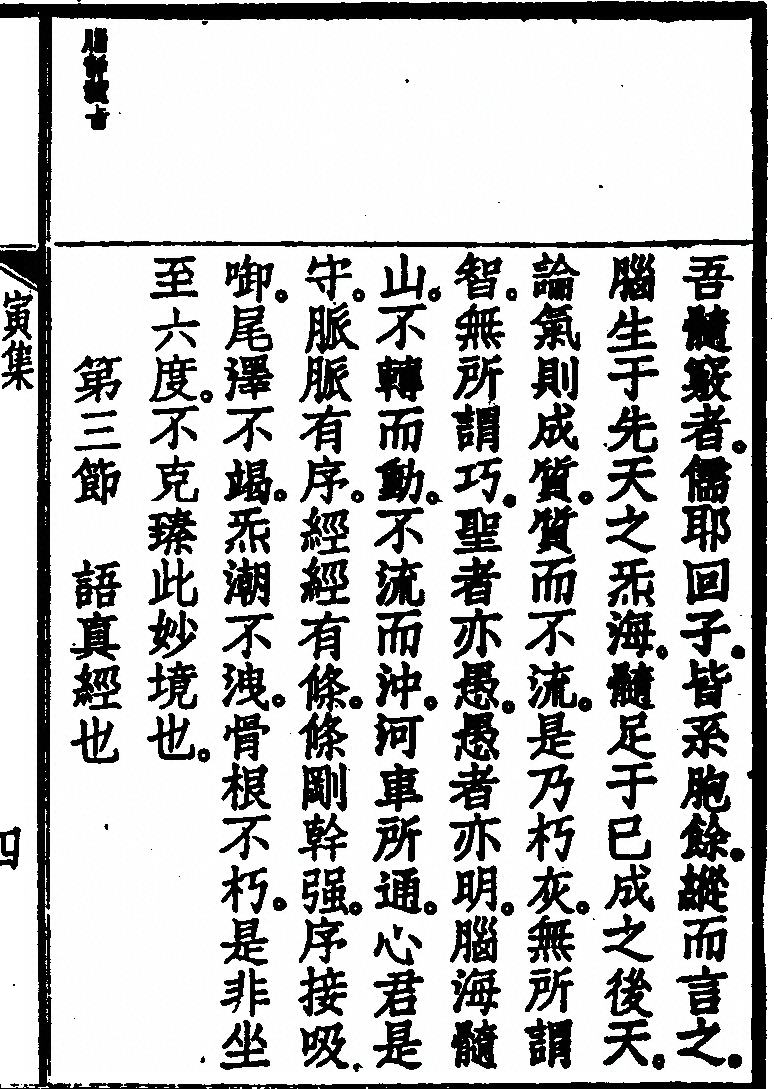 吾髓竅者。儒耶回子。皆系胞餘。縱而言之。
腦生于先天之炁海。髓足于已成之後天。
論氣則成質。質而不流。是乃朽灰。無所謂
智。無所謂巧。聖者亦愚。愚者亦明。腦海髓
山。不轉而動。不流而沖。河車所通。心君是
守。脈脈有序。經經有條。條剛幹强。序接吸
啣。尾澤不竭。炁潮不洩。骨根不朽。是非坐
至六度。不克臻此妙境也。
第三節 語真經也
寅集
四